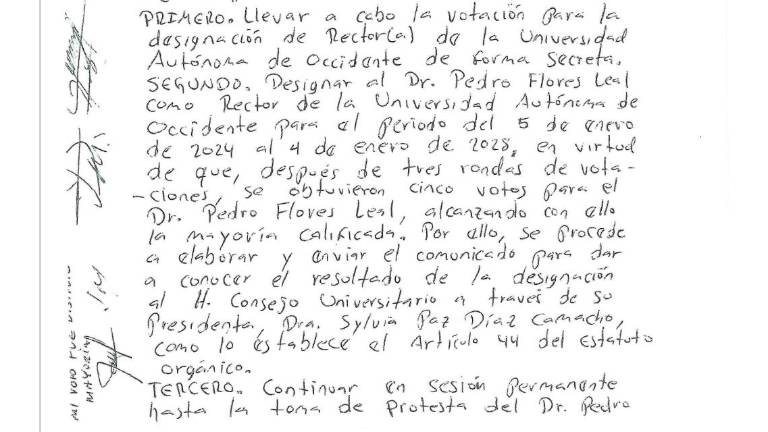 PRIMERO. Llevar a cabo la votación para la
designación de Rector(a) de la Universidad
Autónoma de Occidente de forma secreta.
SEGUNDO. Designar al Dr. Pedro Flores Leal
como Rector de la Universidad Autónoma de
Occidente para el periodo del 5 de enero
de 2024 al 4 de enero de 2028, en virtud
de que, después de tres rondas de vota-
-ciones, se obtuvieron cinco votos para el
Dr. Pedro Flores Leal, alcanzando con ello
la mayoría calificada. Por ello, se procede
a elaborar y enviar el comunicado para dar
a conocer el resultado de la designación
al H. Consejo Universitario a través de su
Presidenta, Dra. Sylvia Paz Díaz Camacho,
como lo establece el Artículo 44 del Estatuto
orgánico.
TERCERO. Continuar en sesión permanente
hasta la toma de Protesta del Dr. Pedro
MI VOTO FUE DISTINTO
MAYORIA